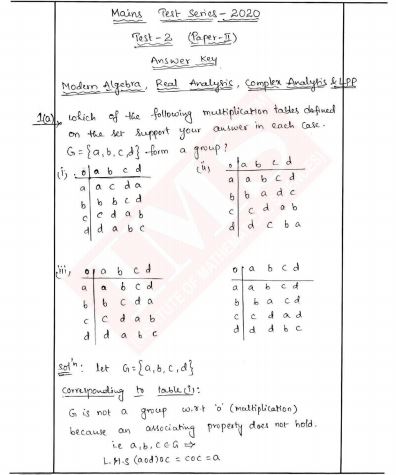 Mains Test Series - 2020
Test - 2 (Paper-II)
Answer Key
Modern Algebra, Real Analysis, Complex Analysis & LPP
1(a) which of the following multiplication tables defined
on the set support your answer in each case.
G = {a, b, c, d} form a group?
(i) o a b c d
a a c d a
b b b c d
c c d a b
d d a b c
(ii) o a b c d
a a b c d
b b a d c
c c d a b
d d c b a
iii, o a b c d
a a b c d
b b c d a
c c d a b
d d a b c
o a b c d
a a b c d
b b a c d
c c d a d
d d d b c
Sol'n: let G = {a, b, c, d}
Corresponding to table (i):
G is not a group w.r.t 'o' (multiplication)
because an associating property does not hold.
i.e a, b, c ∈ G ⇒
L.M.S (aod)oc = coc = a